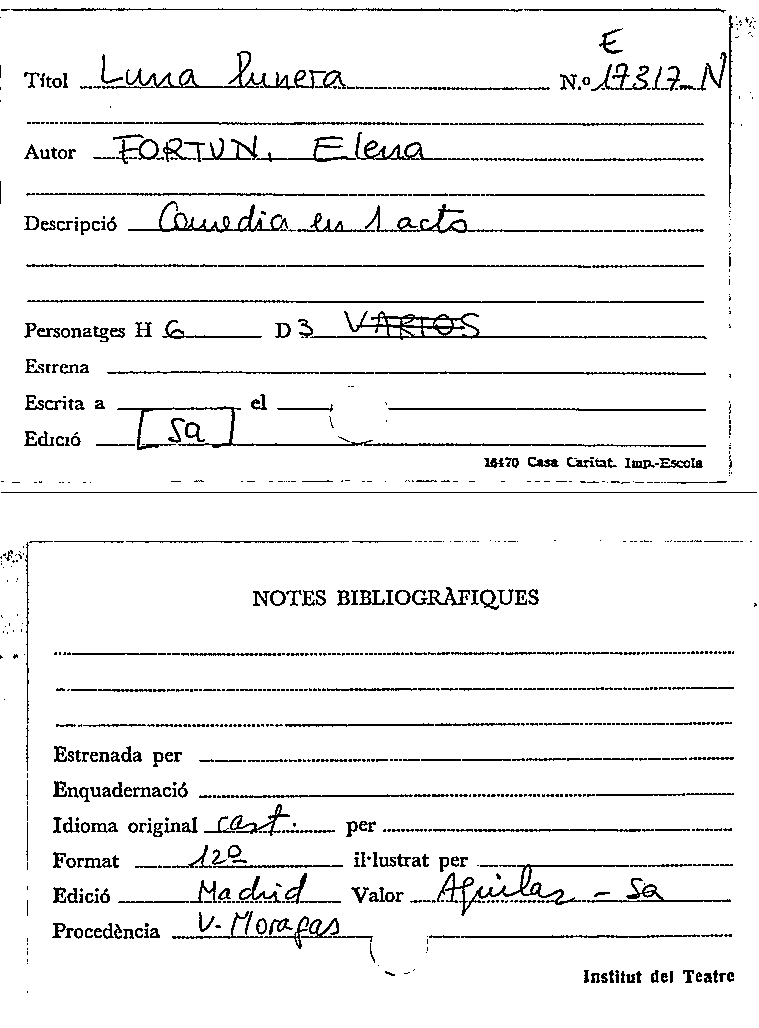 E
Títol Luna lunera N.º 17317-N
Autor FORTUN, Elena
Descripció Comedia en 1 acto
Personatges H 6 D 3 VARIOS
Estrena
Escrita a el
Edició [sa]
16470 Casa Caritat. Imp.-Escola
NOTES BIBLIOGRÀFIQUES
Estrenada per
Enquadernació
Idioma original cast. per
Format 12º il·lustrat per
Edició Madrid Valor Aguilar - sa
Procedència V. Moragas
Institut del Teatre